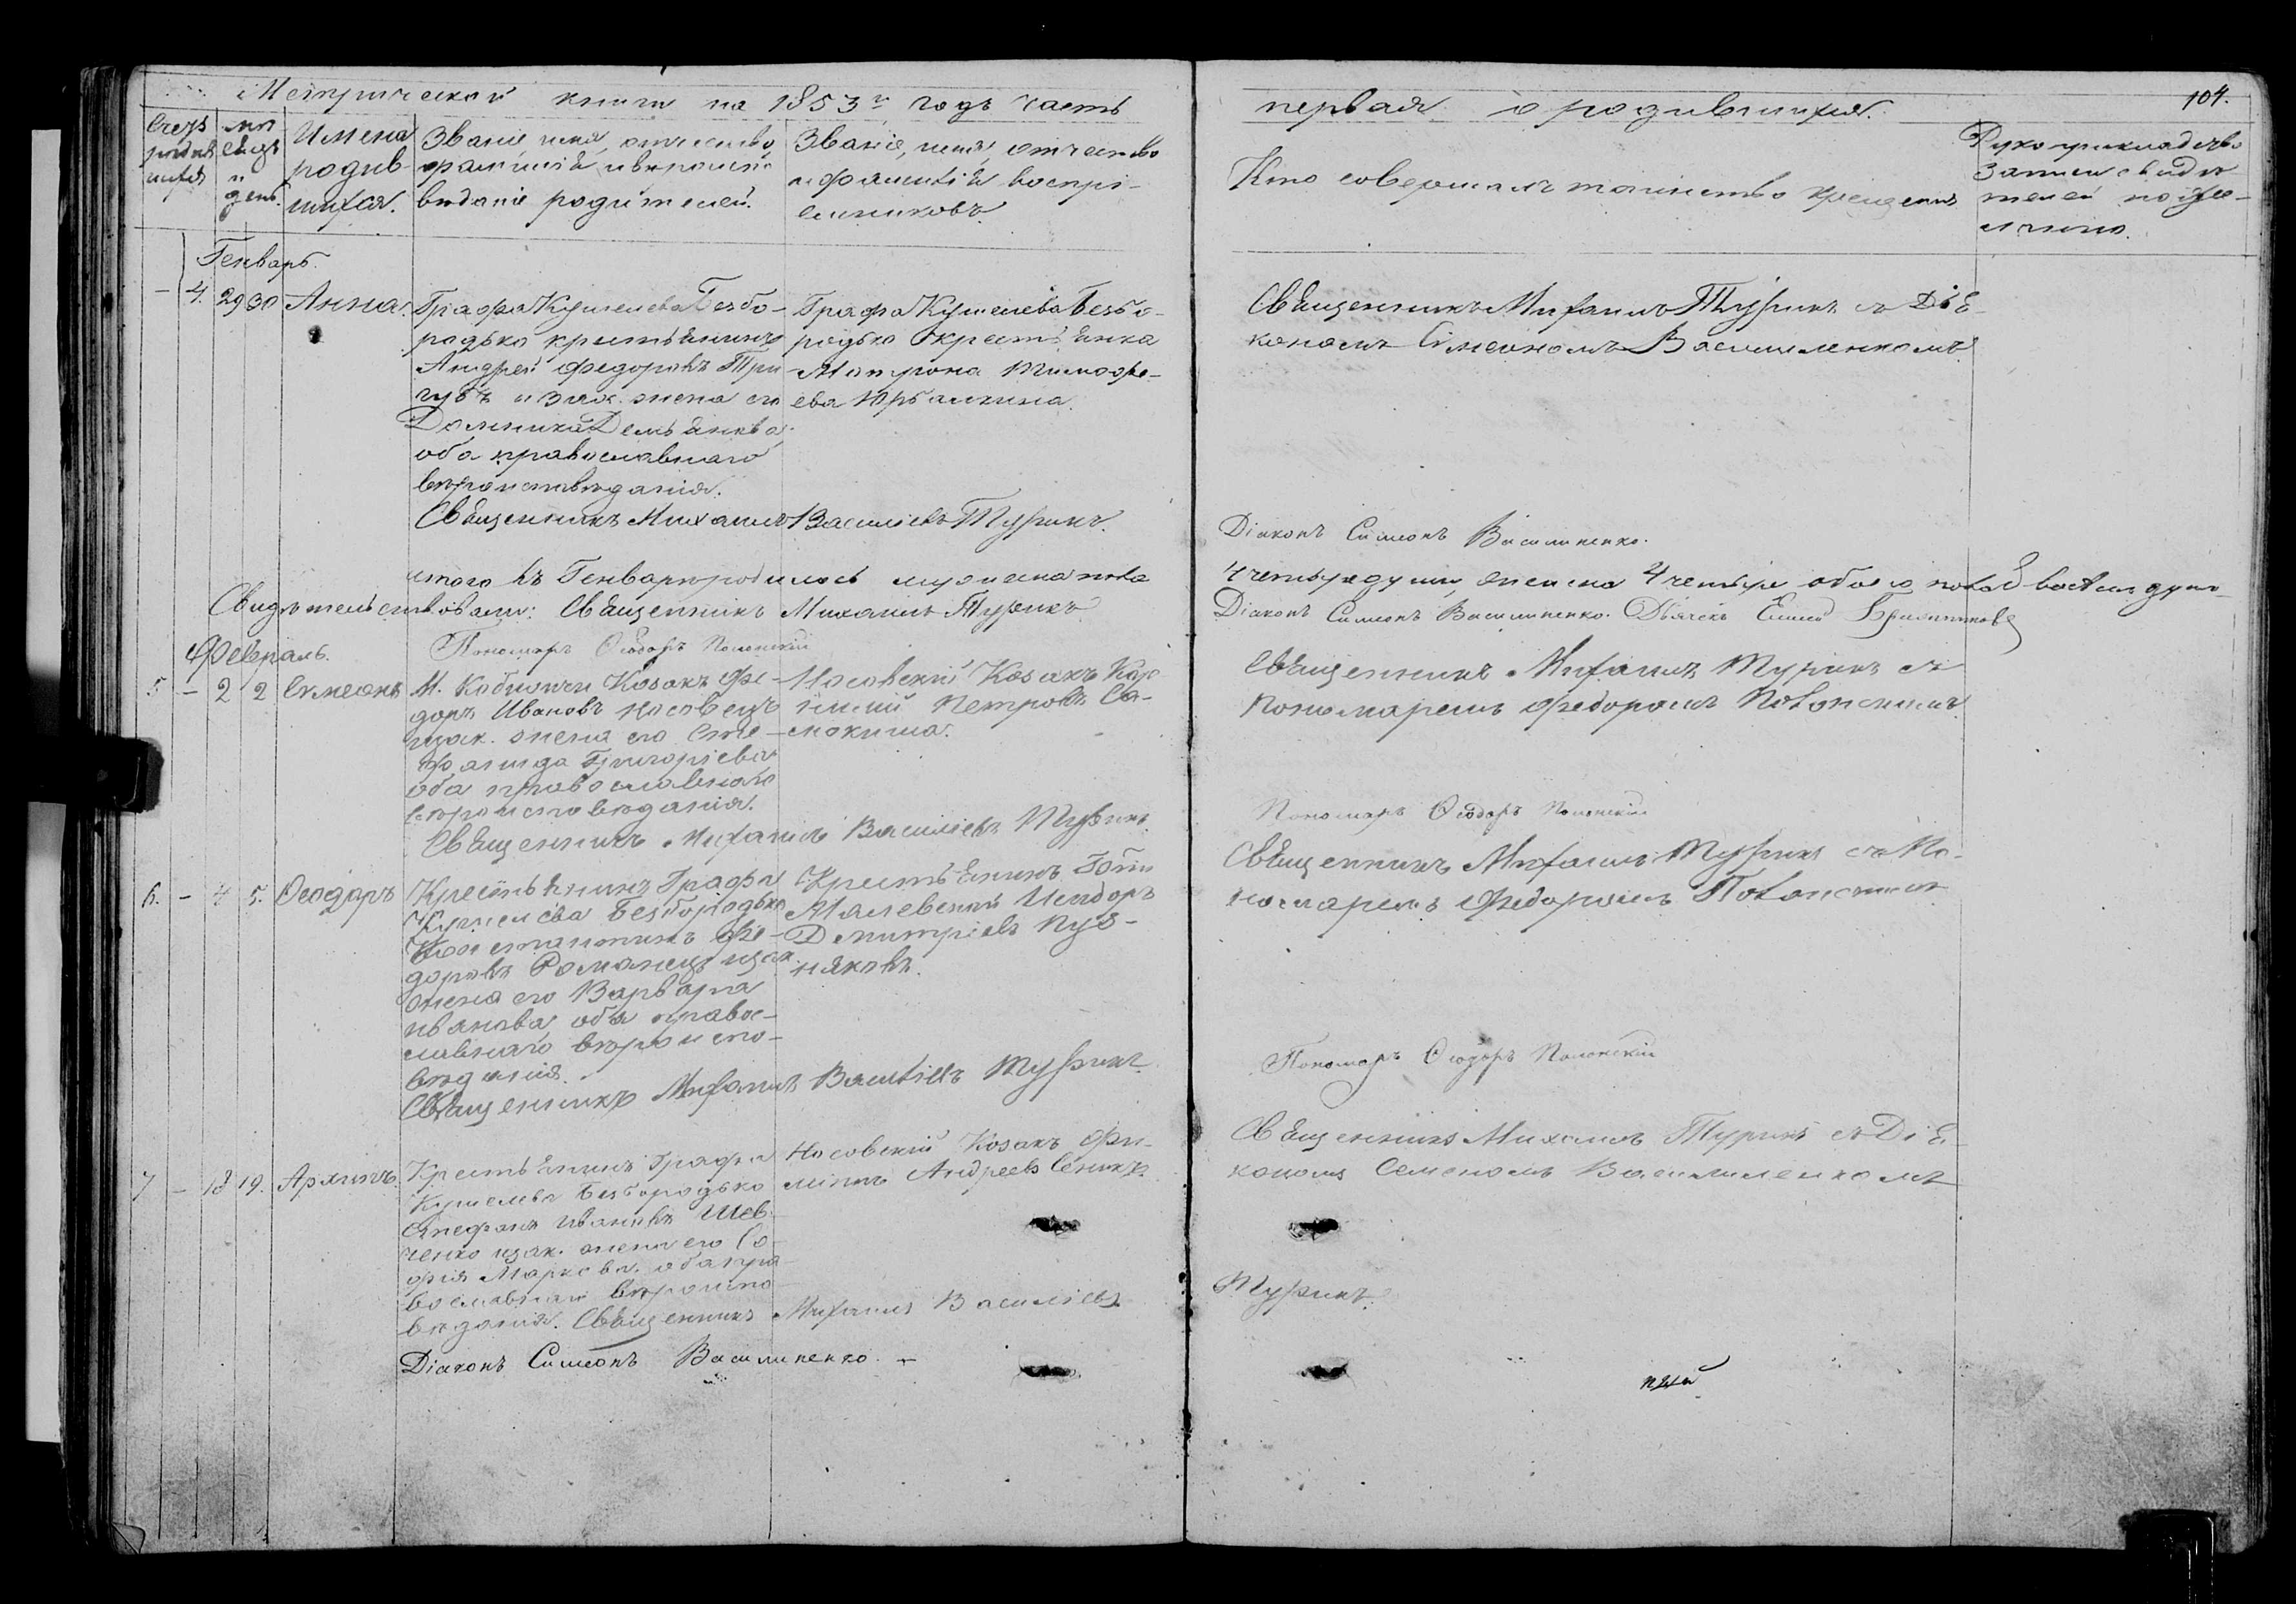 Метрической книги на 1853й годъ часть
первая о родившихся.
104.
Счетъ родившихся
мѣсяцъ и день.
Имена
родив-
шихся.
Званіе, имя, отчество,
фамилія и вѣроиспо-
вѣданіе родителей.
Званіе, имя, отчество
и фамилія воспрі-
емниковъ.
Кто совершалъ таинство крещенія
Рукоприкладство
записи свидѣ
телей по же-
ланію.
Генварь.
– 4. 29 30 Анна.
Графа Кушелева Безбо-
родька крестьянинъ
Андрей Федоровъ Три
губъ и зак. жена его
Домникія Демьянова
оба православнаго
вѣроисповѣданія.
Графа Кушелева Безбо-
родька крестьянка
Матрона Тимофе-
ева
Священникъ Михаилъ Турикъ съ Дія-
кономъ Симеономъ Василиненкомъ
Священникъ Михаилъ Василіевъ Турикъ.
Діаконъ Симеонъ Василиненко.
итого въ Генварѣ родилось мужеска пола
4 четыре души, женска 4 четыре обоего пола 8 восемь душ
Свидѣтельствовали: Священникъ Михаилъ Турикъ
Діаконъ Симеонъ Василиненко. Дьячекъ
Пономарь Ѳеодоръ Полонскій
Февраль.
5 – 2 2 Симеонъ
М. Кобыжчи Козакъ Фе-
доръ Ивановъ Носовецъ
и зак. жена его Сте-
фанида Григоріева
оба православнаго
вѣроисповѣданія.
Носовскій Козакъ
Петровъ Са-
Священникъ Михаилъ Турикъ съ
Пономаремъ Федоромъ Полонскимъ
Священникъ Михаилъ Василіевъ Турикъ
Пономарь Ѳеодоръ Полонскій
6. – 4 5. Ѳеодоръ
Крестьянинъ Графа
Кушелева Безбородька
Константинъ Фе-
доровъ Романецъ и зак.
жена его Варвара
Иванова, оба правос-
лавнаго вѣроиспо-
вѣданія.
Крестьянинъ
Исидоръ
Димитріевъ Пуз-
няковъ.
Священникъ Михаилъ Турикъ съ По-
номаремъ Федоромъ Полонскимъ
Священникъ Михаилъ Василіевъ Турикъ
Пономарь Ѳеодоръ Полонскій
7 – 18 19. Архипъ.
Крестьянинъ Графа
Кушелева Безбородько
Стефанъ Ивановъ Шев-
ченко и зак. жена его Со-
фія Маркова оба пра-
вославнаго вѣроиспо-
вѣданія. Священникъ Михаилъ Василіевъ
Носовскій Козакъ Фи-
липъ Андреевъ Сеникъ
Священникъ Михаилъ Турикъ съ Дія-
кономъ Семеномъ Василиненкомъ
Турикъ.
Діаконъ Симеонъ Василиненко. –